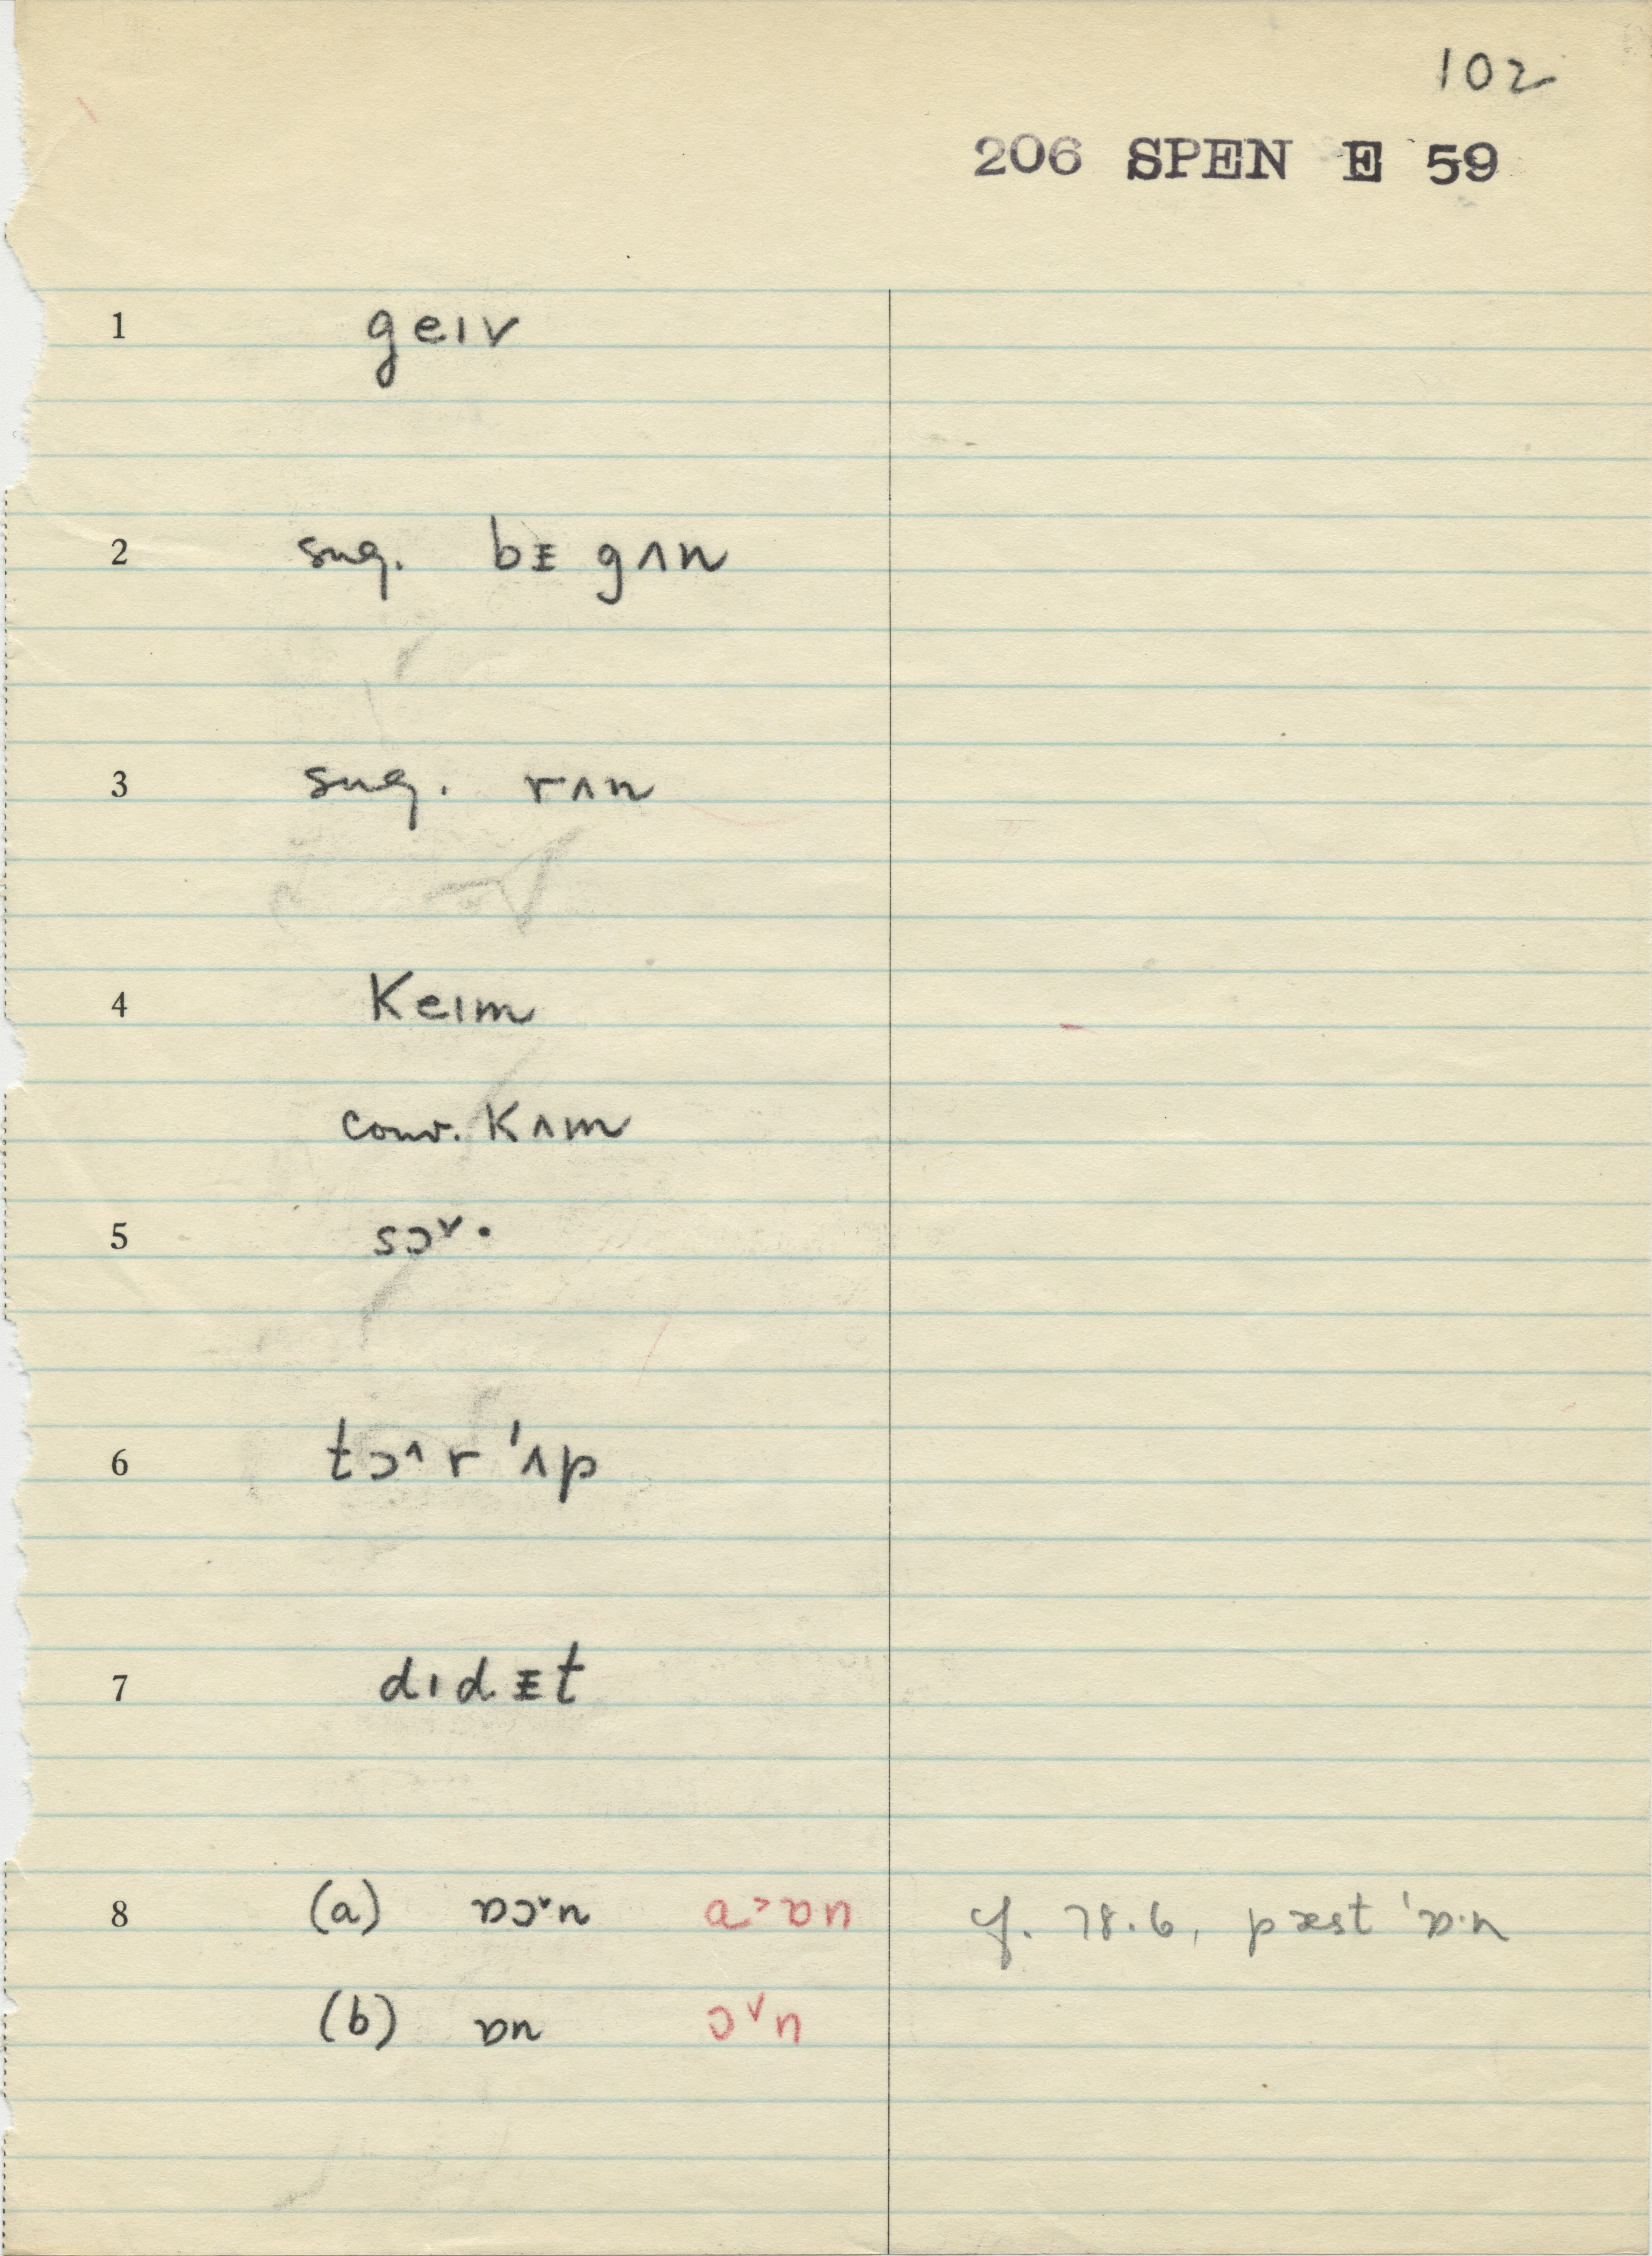 102
206 SPEN E 59
1 geɪv
2 sug. bᵻgʌn
3 sug. rʌn
4 Keɪm
conv. Kʌm
5 sɔ˅·
6 tɔ˄r ˈʌp
7 dɪdᵻt
8 (a) ɒɔ˅n ɒ˃ɒn cf. 78.6, pæst ˈɒ·n
(b) ɒn ɔ˅n